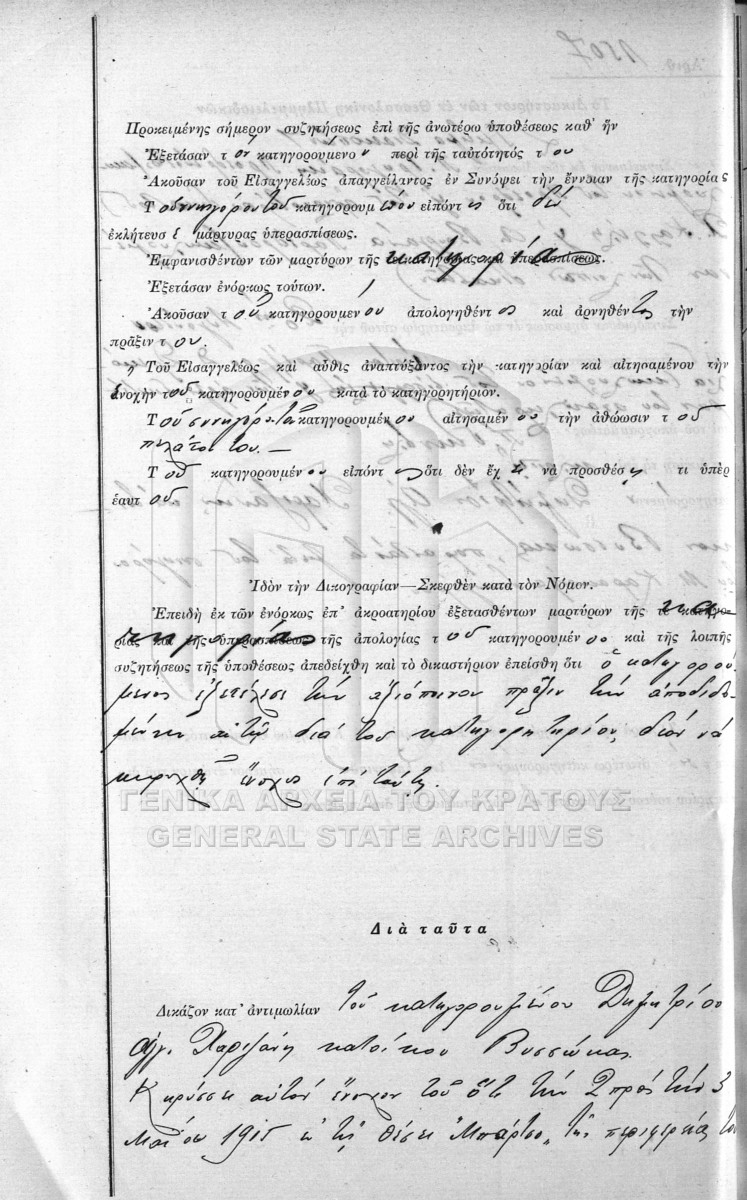 Προκειμένης σήμερον συζητήσεως ἐπὶ τῆς ἀνωτέρω ὑποθέσεως καθ' ἥν
Ἐξετάσαν τον κατηγορούμενον περὶ τῆς ταὐτότητός του
Ἀκοῦσαν τοῦ Εἰσαγγελέως ἀπαγγείλαντος ἐν Συνόψει τὴν ἔννοιαν τῆς κατηγορίας
Τοῦ συνηγόρου τοῦ κατηγορουμένου εἰπόντος ὅτι δὲν
ἐκλήτευσε μάρτυρας ὑπερασπίσεως.
Ἐμφανισθέντων τῶν μαρτύρων τῆς κατηγορίας καὶ ὑπερασπίσεως.
Ἐξετάσαν ἐνόρκως τούτων.
Ἀκοῦσαν τοῦ κατηγορουμένου ἀπολογηθέντος καὶ ἀρνηθέντος τὴν
πρᾶξιν του.
Τοῦ Εἰσαγγελέως καὶ αὖθις ἀναπτύξαντος τὴν κατηγορίαν καὶ αἰτησαμένου τὴν
ἐνοχὴν τοῦ κατηγορουμένου κατὰ τὸ κατηγορητήριον.
Τοῦ συνηγόρου τοῦ κατηγορουμένου αἰτησαμένου τὴν ἀθώωσιν τοῦ
πελάτου του.—
Τοῦ κατηγορουμένου εἰπόντος ὅτι δὲν ἔχει νὰ προσθέσῃ τι ὑπὲρ
ἑαυτοῦ
Ἰδὸν τὴν Δικογραφίαν—Σκεφθὲν κατὰ τὸν Νόμον.
Ἐπειδὴ ἐκ τῶν ἐνόρκως ἐπ' ἀκροατηρίου ἐξετασθέντων μαρτύρων τῆς κα
τηγορίας τῆς ἀπολογίας τοῦ κατηγορουμένου καὶ τῆς λοιπῆς
συζητήσεως τῆς ὑποθέσεως ἀπεδείχθη καὶ τὸ δικαστήριον ἐπείσθη ὅτι ὁ κατηγορού
μενος ἐξετέλεσε τὴν ἀξιόποινον πρᾶξιν τὴν ἀποδιδο
μένην αὐτῷ διὰ τοῦ κατηγορητηρίου, διὸ νὰ
κηρυχθῇ ἔνοχος ἐπὶ ταύτῃ.
ΓΕΝΙΚΑ ΑΡΧΕΙΑ ΤΟΥ ΚΡΑΤΟΥΣ
GENERAL STATE ARCHIVES
Διὰ ταῦτα
Δικάζον κατ' ἀντιμωλίαν τοῦ κατηγορουμένου Δημητρίου
Ἀγγ. Χαριζάνη κατοίκου Βυσσώκας
Κηρύσσει αὐτὸν ἔνοχον τοῦ ὅτι τὴν 2 πρὸς τὴν 3
Μαΐου 1915 ἐν τῇ θέσει "Μπάρτσο" τῆς περιφερείας τοῦ